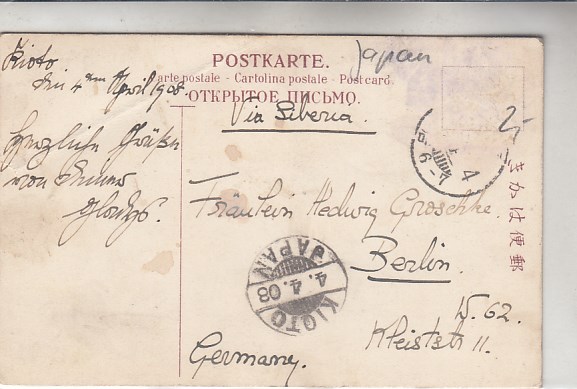 Japan
POSTKARTE.
Carte postale - Cartolina postale - Post card.
ОТКРЫТОЕ ПИСЬМО.
Via Siberia.
Kioto
den 4ten April 1908
Herzliche Grüße
von
Fräulein Hedwig Groschke.
Berlin.
W. 62.
Kleiststr 11.
Germany.
KIOTO
4.4.08
JAPAN
きかは便郵
4
2